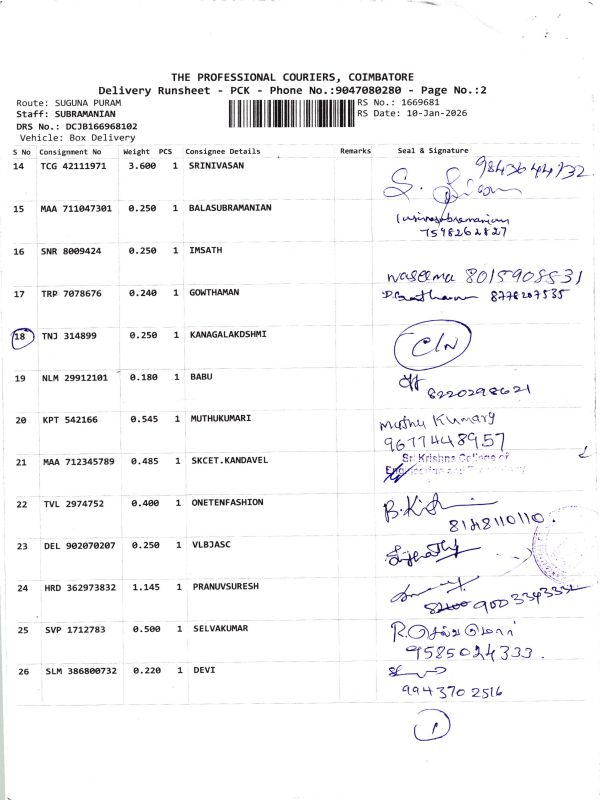 THE PROFESSIONAL COURIERS, COIMBATORE
Delivery Runsheet - PCK - Phone No.:9047080280 - Page No.:2
Route: SUGUNA PURAM RS No.: 1669681
Staff: SUBRAMANIAN RS Date: 10-Jan-2026
DRS No.: DCJB166968102
Vehicle: Box Delivery
S No Consignment No Weight PCS Consignee Details Remarks Seal & Signature
14 TCG 42111971 3.600 1 SRINIVASAN
15 MAA 711047301 0.250 1 BALASUBRAMANIAN
7598262827
16 SNR 8009424 0.250 1 IMSATH
waseema 8015908531
17 TRP 7078676 0.240 1 GOWTHAMAN 8778207535
18 TNJ 314899 0.250 1 KANAGALAKDSHMI
C/N
19 NLM 29912101 0.180 1 BABU
8220298621
20 KPT 542166 0.545 1 MUTHUKUMARI Muthu Kumary
9677448957
21 MAA 712345789 0.485 1 SKCET.KANDAVEL Sri Krishna College of
22 TVL 2974752 0.400 1 ONETENFASHION
8148110110.
23 DEL 902070207 0.250 1 VLBJASC
24 HRD 362973832 1.145 1 PRANUVSURESH
25 SVP 1712783 0.500 1 SELVAKUMAR
9585024333.
26 SLM 386800732 0.220 1 DEVI
9943702516
1